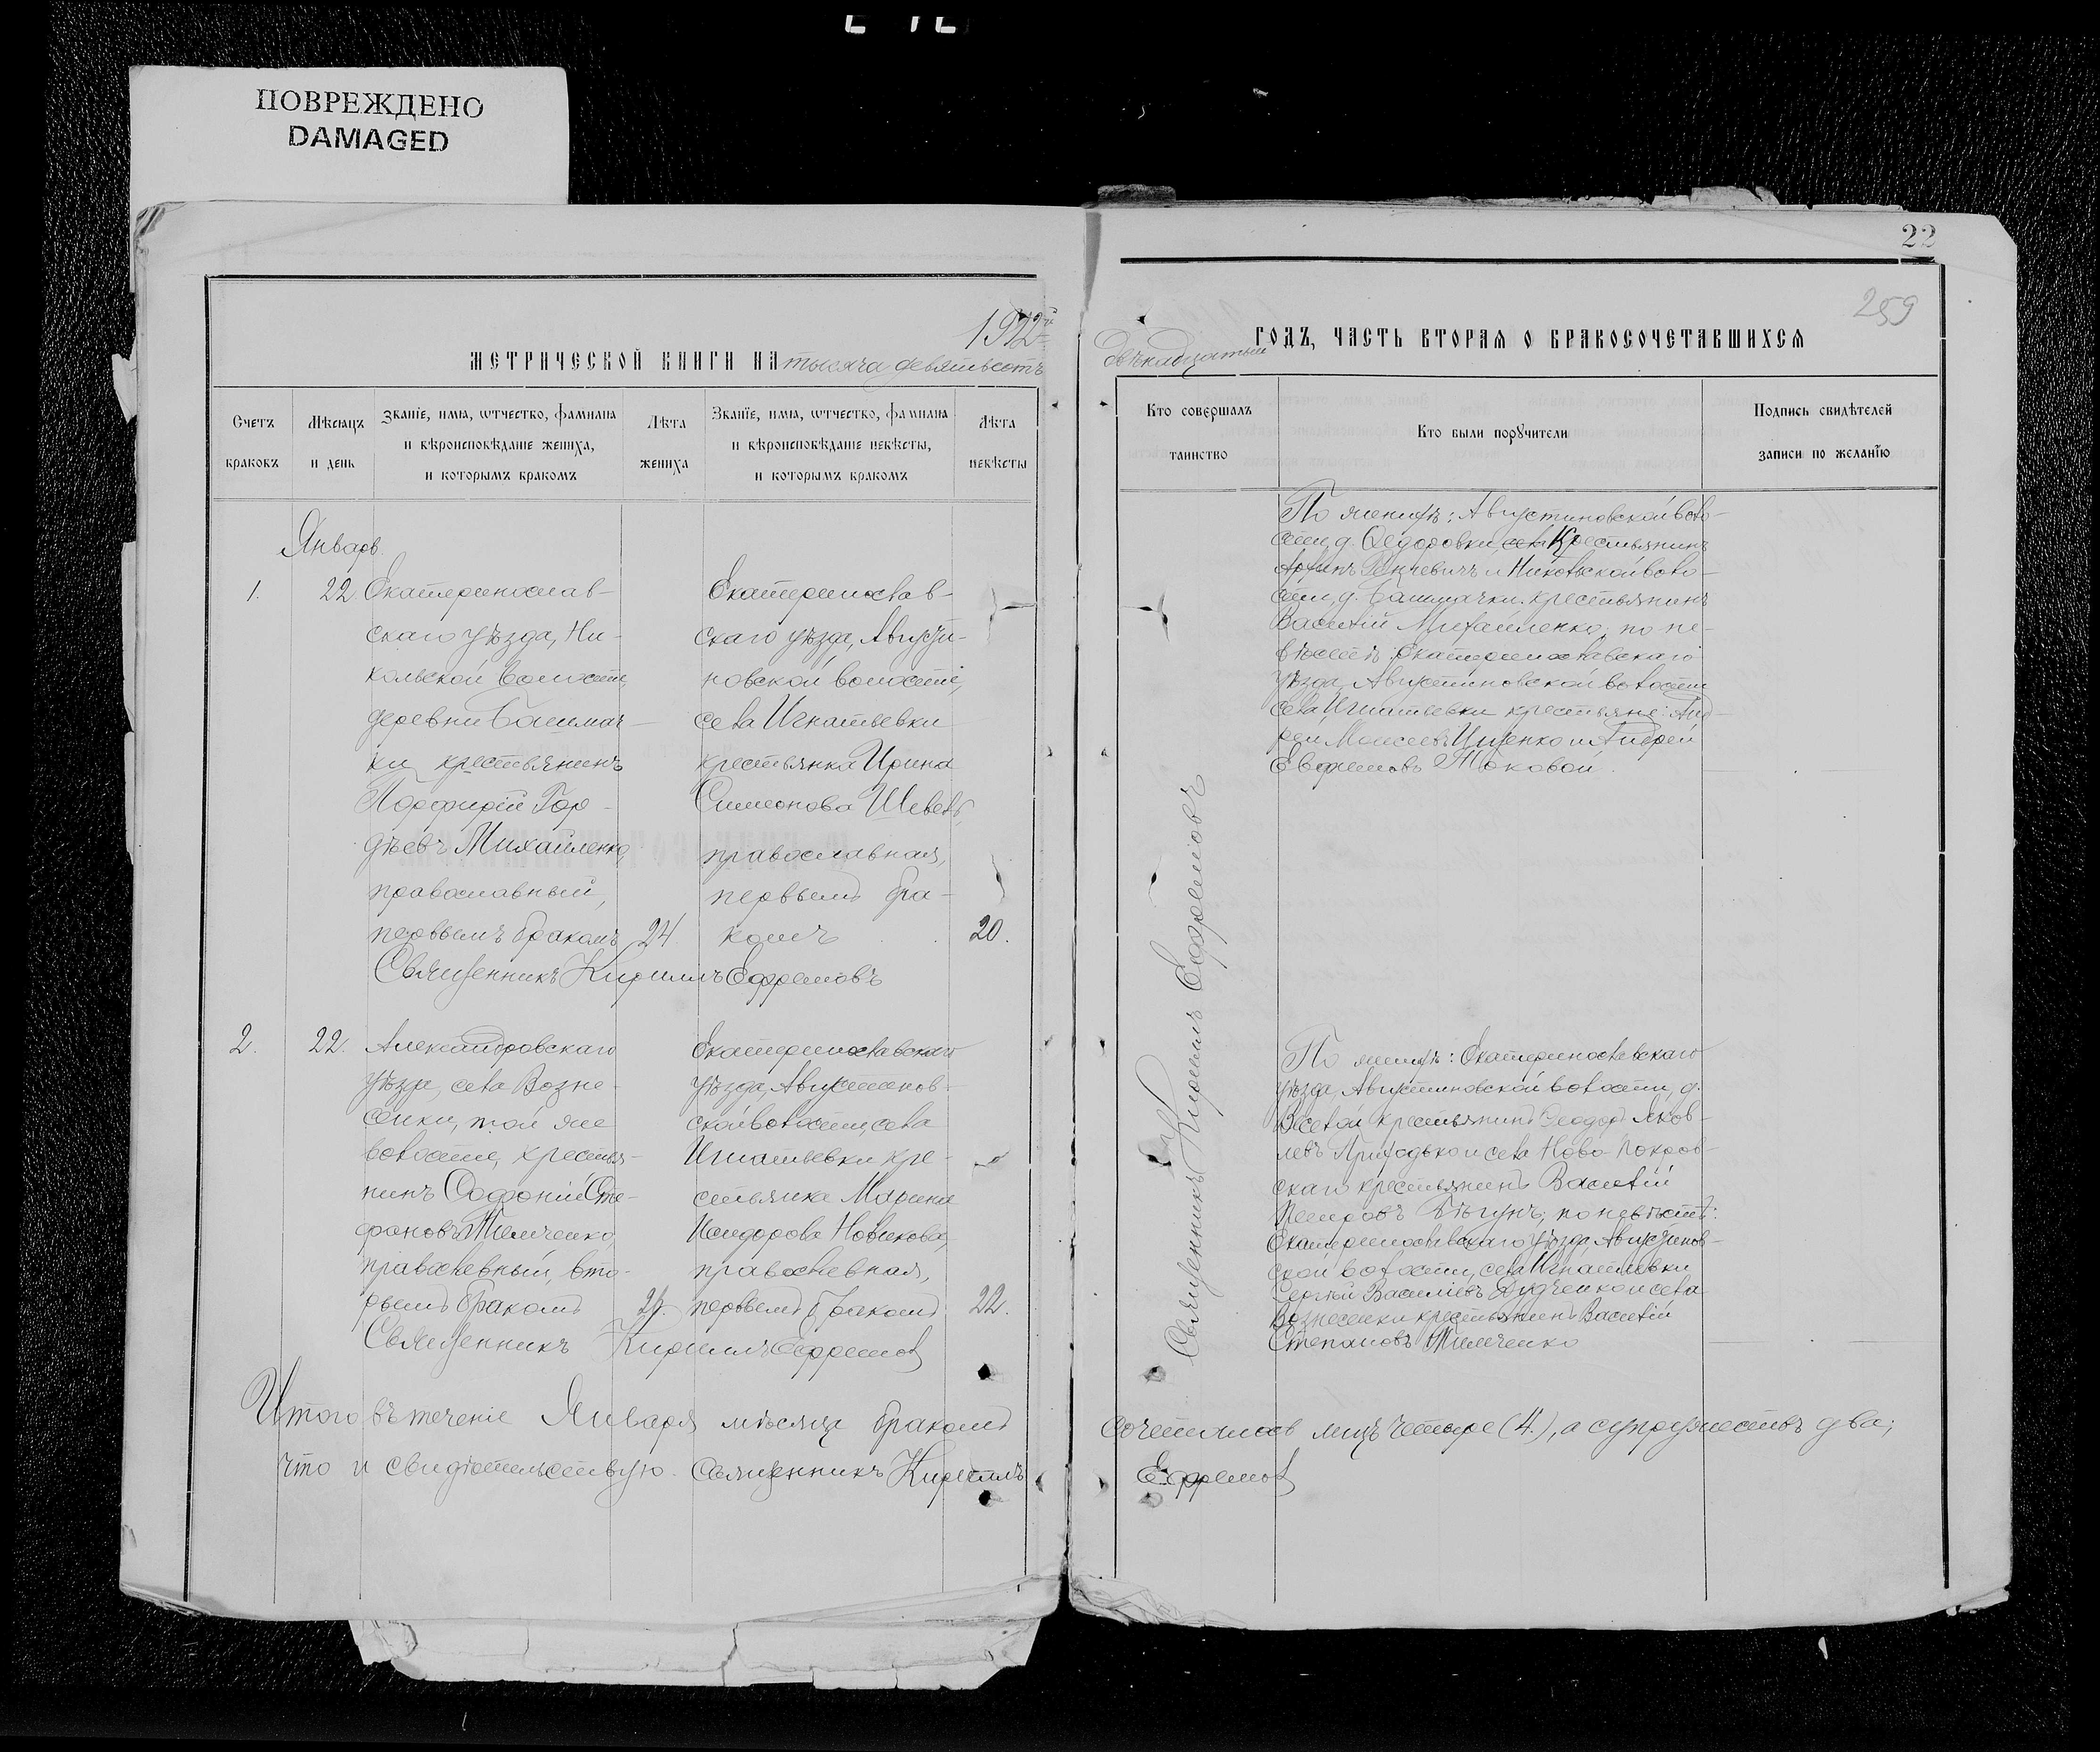 ПОВРЕЖДЕНО
DAMAGED
22
259
1912й
МЕТРИЧЕСКОЙ КНИГИ НА тысяча девятьсотъ
двѣнадцатый ГОДЪ, ЧАСТЬ ВТОРАЯ О БРАКОСОЧЕТАВШИХСЯ
Счетъ браковъ
Мѣсяцъ и день
Званіе, имя, отчество, фамилія
и вѣроисповѣданіе жениха,
и которымъ бракомъ
Лѣта жениха
Званіе, имя, отчество, фамилія
и вѣроисповѣданіе невѣсты,
и которымъ бракомъ
Лѣта невѣсты
Кто совершалъ
таинство
Кто были поручители
Подпись свидѣтелей
записи по желанію
Январь
1.
22
Екатеринослав-
скаго уѣзда, Ни-
кольской волости,
деревни Башмач-
ки крестьянинъ
Порфирій Гор-
дѣевъ Михайленко,
православный,
первымъ бракомъ
24
Екатеринослав-
скаго уѣзда, Августи-
новской волости,
села Игнатьевки
крестьянка Ирина
Симеонова Швець,
православная,
первымъ бра-
комъ
20.
Священникъ Кириллъ Ефремовъ
По женихѣ: Августиновской воло-
сти, д. Ѳедоровки, Крестьянинъ
и Никольской воло-
сти, д. Башмачки крестьянинъ
Василій Михайленко; по не-
вѣстѣ: Екатеринославскаго
уѣзда, Августиновской волости
села Игнатьевки крестьяне: Анд-
рей Моисеевъ Ищенко и Андрей
Евфимовъ Токовой.
2.
22.
Александровскаго
уѣзда, села Возне-
сенки, той же
волости, крестья-
нинъ Софоній Сте-
фановъ Тимченко,
православный, вто-
рымъ бракомъ
27.
Екатеринославскаго
уѣзда, Августинов-
ской волости, села
Игнатьевки кре-
стьянка Марина
Исидорова Новикова,
православная,
первымъ бракомъ
22.
Священникъ Кириллъ Ефремов
Священникъ Кириллъ Ефремовъ
По женихѣ: Екатеринославскаго
уѣзда, Августиновской волости, д.
Веселой крестьянинъ Ѳеодоръ Яков-
левъ Приходько и села Ново-Покров-
скаго крестьянинъ Василій
Петровъ Бѣгунъ; по невѣстѣ:
Екатеринославскаго уѣзда, Августинов-
ской волости, села Игнатьевки
Сергѣй Василіевъ Дудченко и села
Вознесенки крестьянинъ Василій
Степановъ Тимченко
Итого въ теченіе Января мѣсяца бракомъ сочеталось лицъ четыре (4), а супружествъ два;
что и свидѣтельствую. Священникъ Кириллъ Ефремов